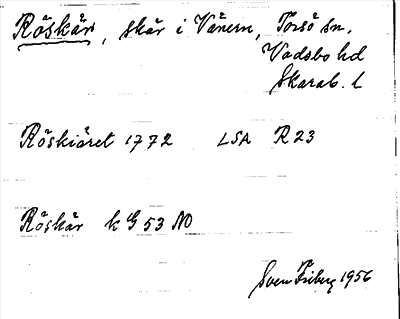 Röskär, skär i Vänern, Torsö sn.
Vadsbo hd
Skarab. l
Röskiäret 1772 LSA R23
Röskär k G 53 NO
Sven Friberg 1956